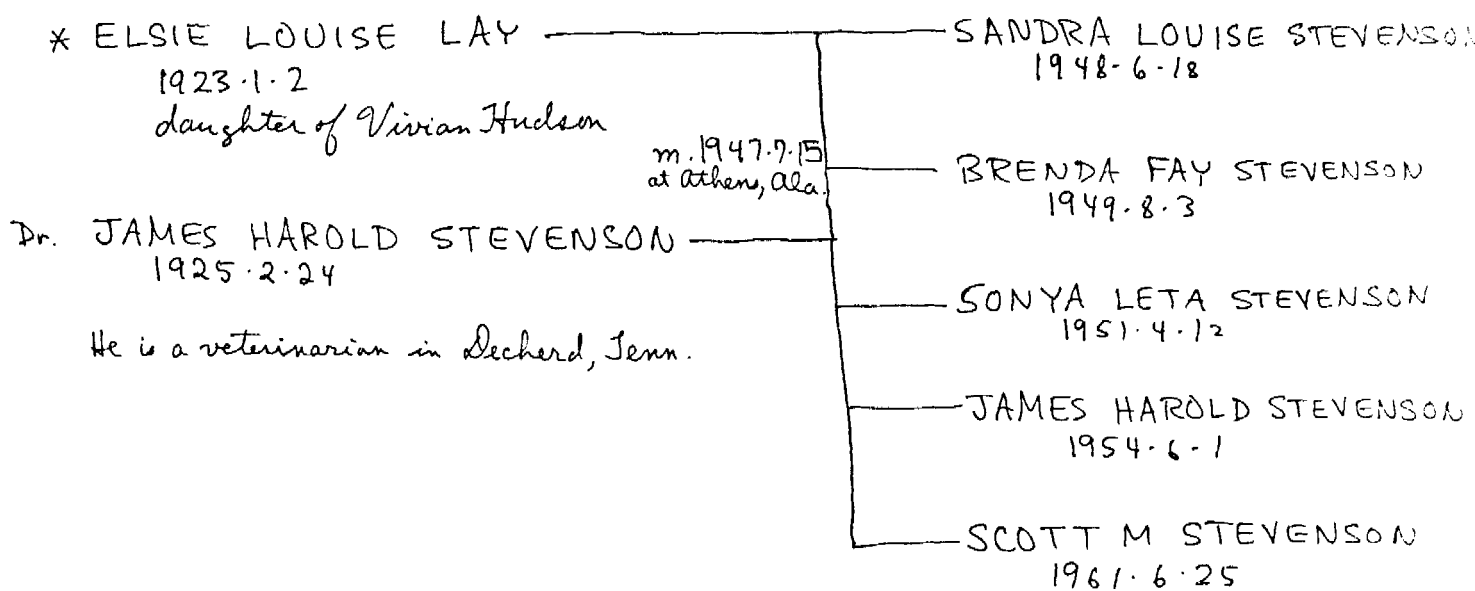 * ELSIE LOUISE LAY
1923·1·2
daughter of Vivian Hudson
m. 1947·7·15
at Athens, Ala.
Dr. JAMES HAROLD STEVENSON
1925·2·24
He is a veterinarian in Decherd, Tenn.
SANDRA LOUISE STEVENSON
1948-6-18
BRENDA FAY STEVENSON
1949·8·3
SONYA LETA STEVENSON
1951·4·12
JAMES HAROLD STEVENSON
1954·6·1
SCOTT M STEVENSON
1961·6·25